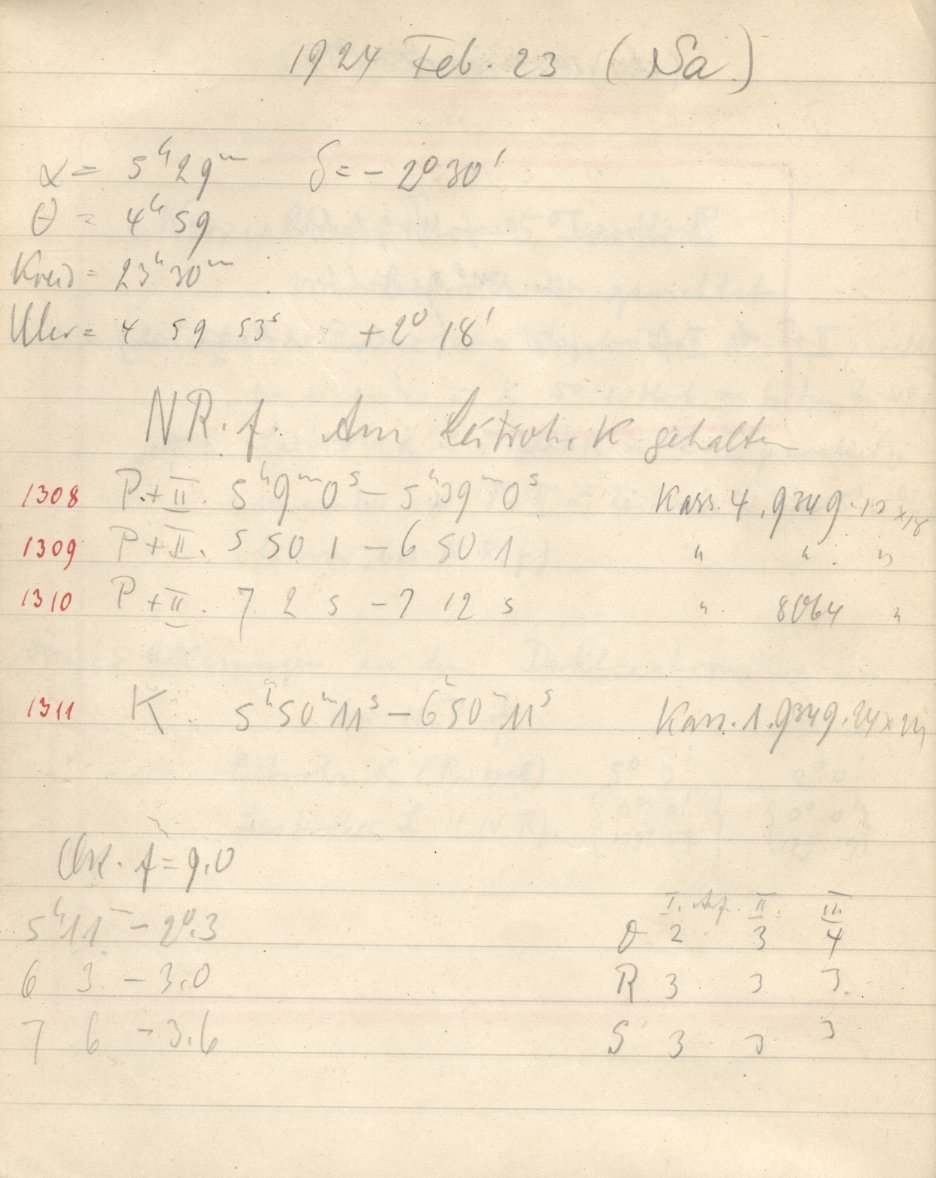 1924 Feb. 23 (Na)
α = 5ʰ 29ᵐ δ = - 2⁰ 30'
θ = 4ʰ 59
Kreis = 23ʰ 30ᵐ
Uhr = 4 59 53ˢ + 2⁰ 18'
NR. f. Am Leitrohr K gehalten
1308 P. + II. 5ʰ 9ᵐ 0ˢ - 5ʰ 39ᵐ 0ˢ Kass. 4. 9349
1309 P + II. 5 50 1 - 6 50 1 " " "
1310 P + II. 7 2 5 - 7 12 5 " 8064 "
1311 K. 5ʰ 50ᵐ 11ˢ - 6ʰ 50ᵐ 11ˢ Kass. 1. 9349.
f = 9.0
5ʰ 11ᵐ - 2⁰.3
6 3. - 3.0
7 6 - 3.6
I. Auf. II. III
D 2 3 4
R 3 3 3.
S 3 3 3